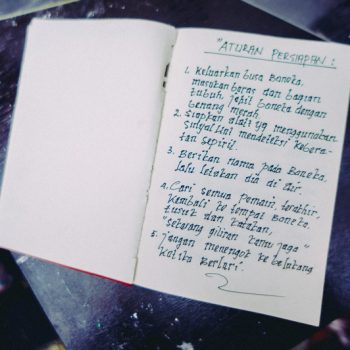 "ATURAN PERSIAPAN :
1. Keluarkan busa Boneka,
masukan beras dan bagian
tubuh, jahit boneka dengan
benang merah.
2. Siapkan alat yg menggunakan
sinyal
mendeteksi kebera-
3. Berikan nama pada Boneka,
lalu letakan dia di air.
4. Cari semua Pemain, terakhir
kembali ke tempat Boneka,
tusuk dan katakan,
"sekarang giliran kamu jaga"
5. Jangan menengok ke belakang
ketika berlari.